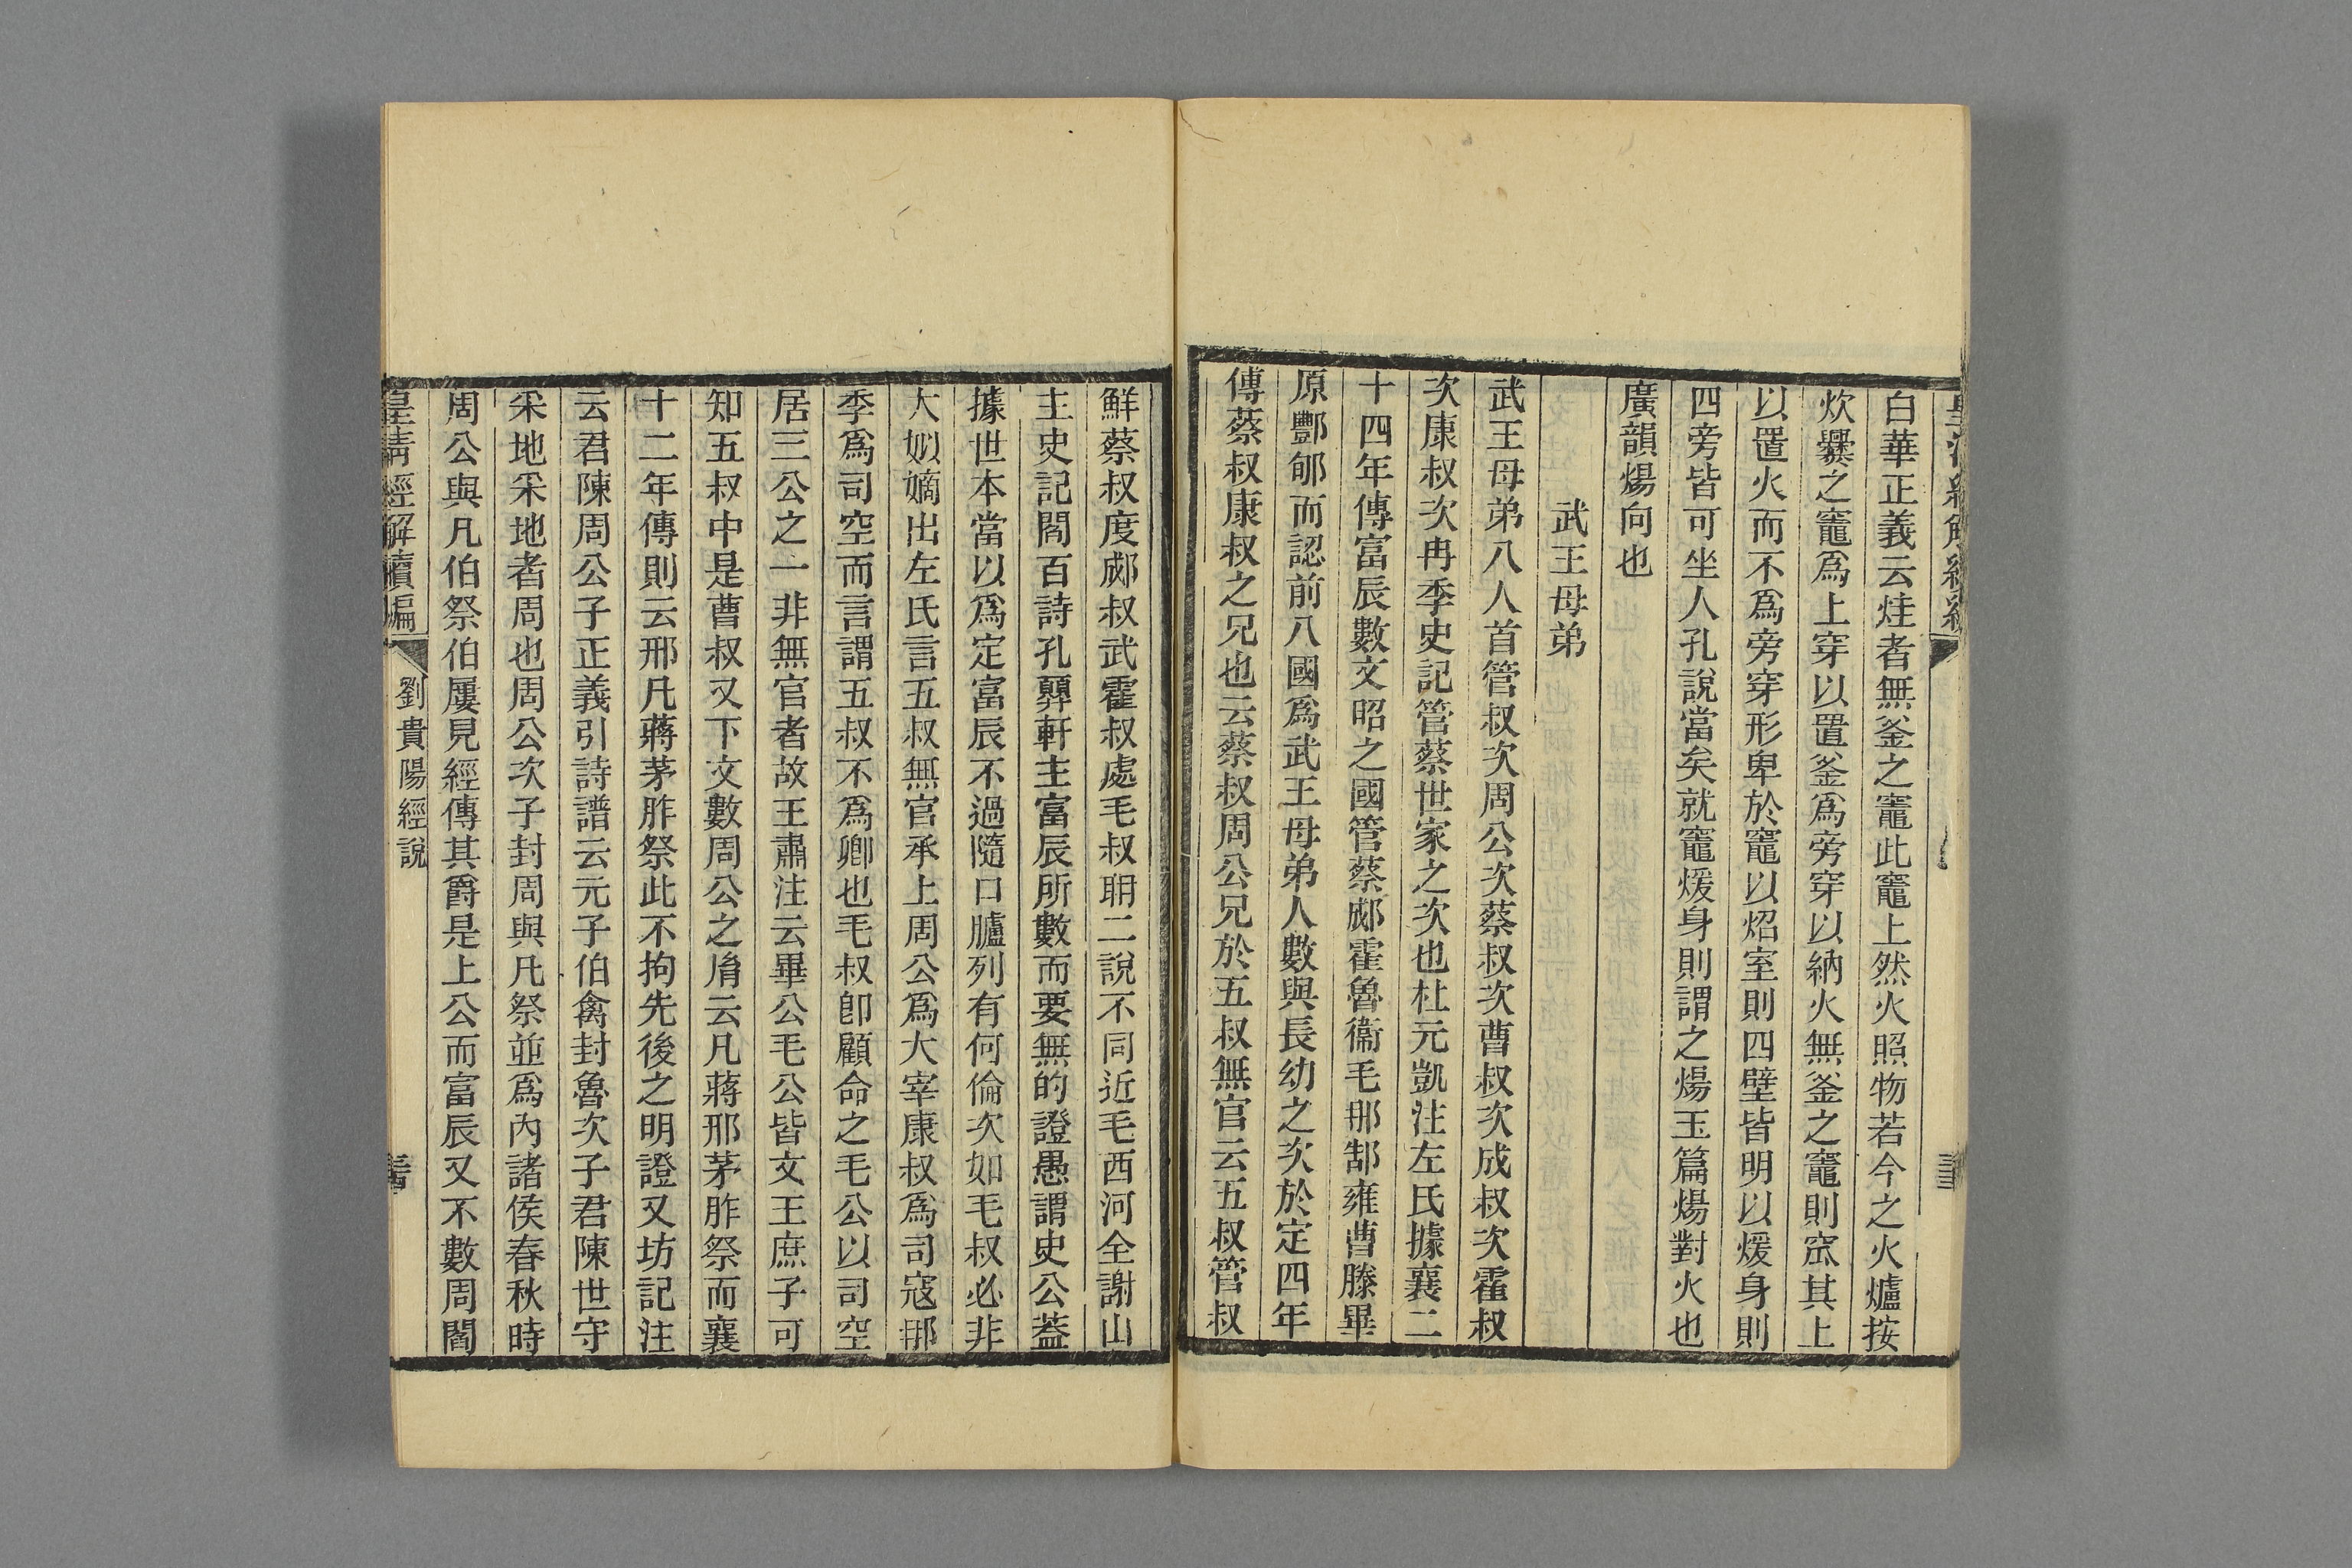 白華正義云烓者無釜之竈此竈上然火照物若今之火爐按
炊爨之竈爲上穿以置釜爲旁穿以納火無釜之竈則窊其上
以置火而不爲旁穿形卑於竈以炤室則四壁皆明以煖身則
四旁皆可坐人孔說當矣就竈煖身則謂之煬玉篇煬對火也
廣韻煬向也
武王母弟
武王母弟八人首管叔次周公次蔡叔次曹叔次成叔次霍叔
次康叔次冉季史記管蔡世家之次也杜元凱注左氏據襄二
十四年傳富辰數文昭之國管蔡郕霍魯衞毛聃郜雍曹滕畢
原酆郇而認前八國爲武王母弟人數與長幼之次於定四年
傳蔡叔康叔之兄也云蔡叔周公兄於五叔無官云五叔管叔
鮮蔡叔度郕叔武霍叔處毛叔聃二說不同近毛西河全謝山
主史記閻百詩孔顨軒主富辰所數而要無的證愚謂史公葢
據世本當以爲定富辰不過隨口臚列有何倫次如毛叔必非
大姒嫡出左氏言五叔無官承上周公爲大宰康叔爲司寇聃
季爲司空而言謂五叔不爲卿也毛叔卽顧命之毛公以司空
居三公之一非無官者故王肅注云畢公毛公皆文王庶子可
知五叔中是曹叔又下文數周公之胤云凡蔣邢茅胙祭而襄
十二年傳則云邢凡蔣茅胙祭此不拘先後之明證又坊記注
云君陳周公子正義引詩譜云元子伯禽封魯次子君陳世守
采地采地者周也周公次子封周與凡祭並爲內諸侯春秋時
周公與凡伯祭伯屢見經傳其爵是上公而富辰又不數周閻
皇清經解續編
劉貴陽經說